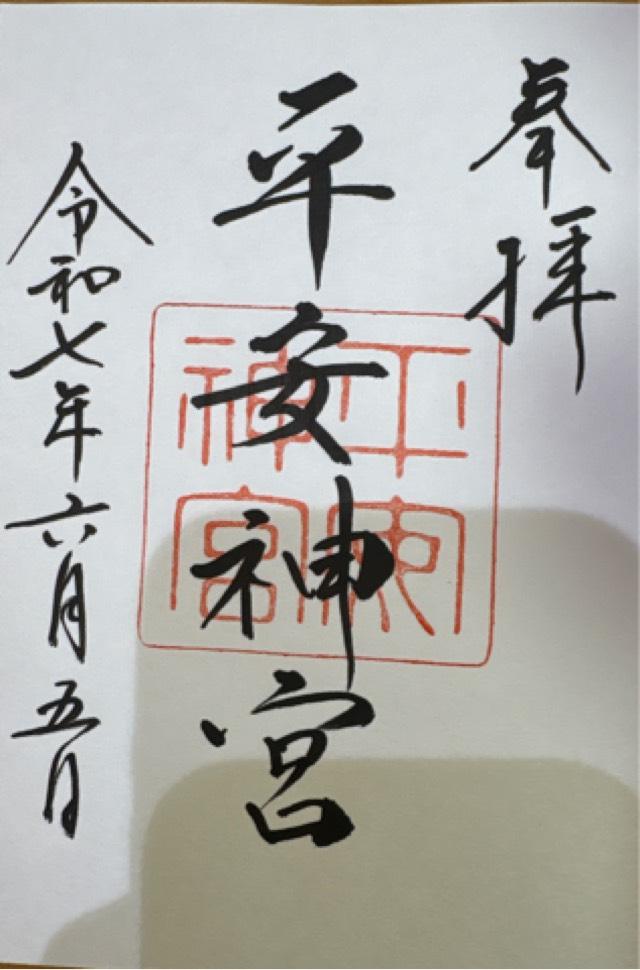 奉拝
平安神宮
平安神宮
令和七年六月五日